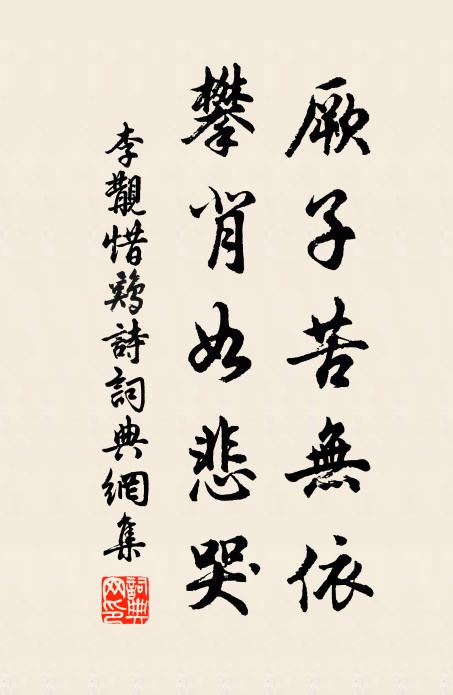 厥子苦無依
攀背如悲哭
李覯惜鷄詩詞典網集
詞典
网印